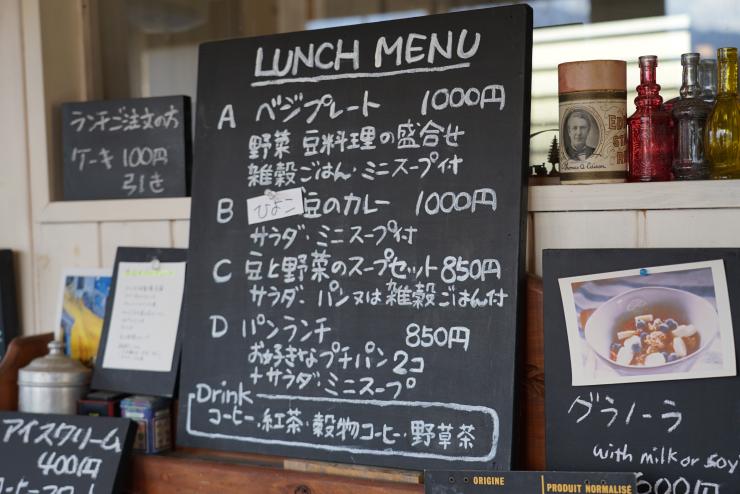 LUNCH MENU
A ベジプレート 1000円
野菜 豆料理の盛合せ
雑穀ごはん・ミニスープ付
B ぴよこ豆のカレー 1000円
サラダ・ミニスープ付
C 豆と野菜のスープセット 850円
サラダ・パン又は雑穀ごはん付
D パンランチ 850円
お好きなプチパン2コ
+サラダ・ミニスープ
Drink
コーヒー・紅茶・穀物コーヒー・野草茶
ランチご注文の方
ケーキ 100円
引き
アイスクリーム
400円
グラノーラ
with milk or soy
600円
ORIGINE
PRODUIT NORMALISÉ